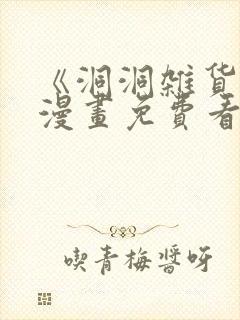 《洞洞雑货
漫畫免費看
喫青梅醬呀